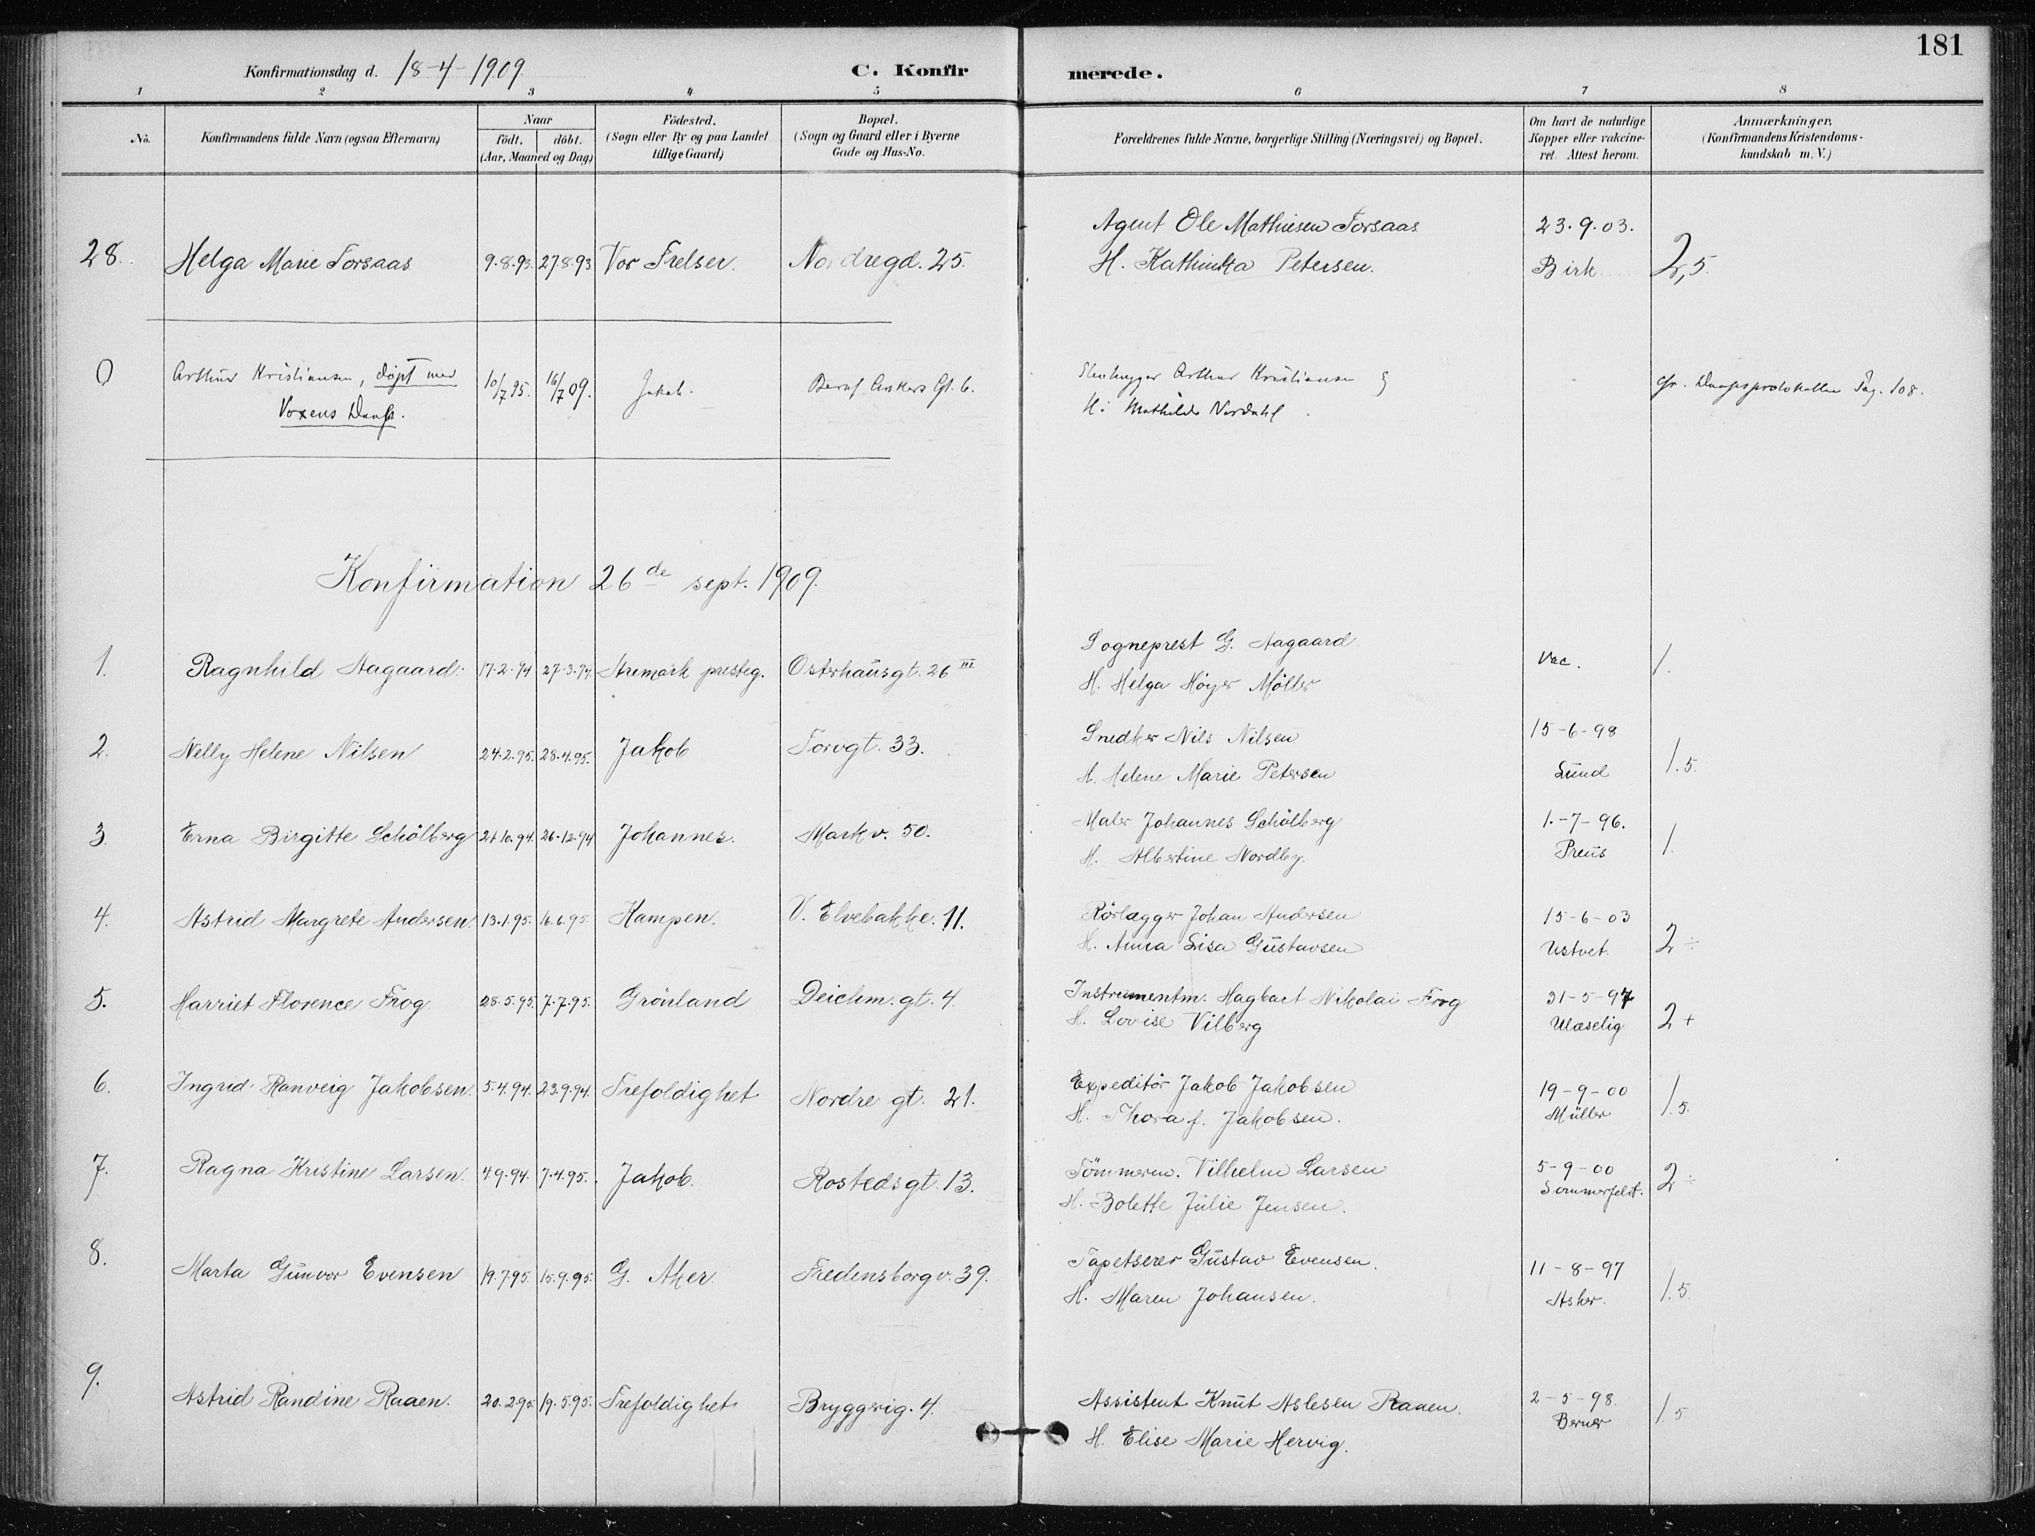 181
Konfirmationsdag d. 18-4-1909. C. Konfirmerede.
1 2 3 4 5 6 7 8
No. Konfirmandens fulde Navn (ogsaa Efternavn) Naar födt. döbt. (Aar, Maaned og Dag) Födested. (Sogn eller By og paa Landet tillige Gaard) Bopæl. (Sogn og Gaard eller i Byerne Gade og Hus-No. Forældrenes fulde Navne, borgerlige Stilling (Næringsvei) og Bopæl. Om havt de naturlige Kopper eller vakcineret. Attest herom. Anmærkninger. (Konfirmandens Kristendomskundskab m. V.)
28. Helga Marie Torsaas 9.8.93. 27.8.93 Vor Frelser. Nordregd. 25. Agent Ole Mathiesen Torsaas 23.9.03.
H. Kathinka Petersen. Birk 2,5.
0 Arthur Kristiansen, døpt med 10/7 95. 16/7 09. Jakob. Bernt Ankers Gt. 6. Stenhugger Arthur Kristiansen & cfr. Daapsprotokollen Pag. 108.
Voxens Daab. H: Mathilde Nordahl.
Konfirmation 26de sept. 1909.
1. Ragnhild Aagaard. 17.2.94 27.3.94. Aremark presteg. Osterhausgt. 26 III Sogneprest G. Aagaard Vac. 1.
H. Helga Høyer Møller
2. Nelly Helene Nilsen 24.2.95. 28.4.95. Jakob Torvgt. 33. Snedker Nils Nilsen 15-6-98
H. Helene Marie Petersen Lund 1.5.
3 Erna Birgitte Schölberg 21.10.94. 26.12.94 Johannes. Markv. 50. Maler Johannes Schölberg 1.-7-96.
H. Albertine Nordby. Preus 1.
4. Astrid Margrete Andersen. 13.1.95. 16.6.95. Kampen. V. Elvebakke. 11. Rörlægger Johan Andersen 15-6-03
H. Anna Lisa Gustavsen Ustvet. 2 ÷
5. Harriet Florence Frog 28.5.95 7.7.95. Grönland Deichm. gt. 4. Instrumentm. Hagbart Nikolai Frog 31-5-97
H. Lovise Vilberg Ulæselig 2 +
6. Ingrid Ranveig Jakobsen. 5.4.94. 23.9.94. Trefoldighet Nordre gt. 21. Expeditör Jakob Jakobsen 19-9-00
H. Thora f. Jakobsen. Müller 1.5.
7. Ragna Kristine Larsen. 4.9.94. 7.4.95. Jakob. Rostedsgt. 13. Tömmerm. Vilhelm Larsen 5-9-00
H. Bolette Julie Jensen. Sommerfelt. 2 ÷
8. Marta Gunvor Evensen 19.7.95. 15.9.95. G. Aker Fredensborgv. 39. Tapetserer Gustav Evensen. 11-8-97
H. Maren Johansen. Asker. 1.5.
9. Astrid Randine Raaen. 20.2.95. 19.5.95. Trefoldighet Bryggerig. 4. Assistent Knut Aslesen Raaen. 2-5-98.
H. Elise Marie Hervig. Berner 1.5